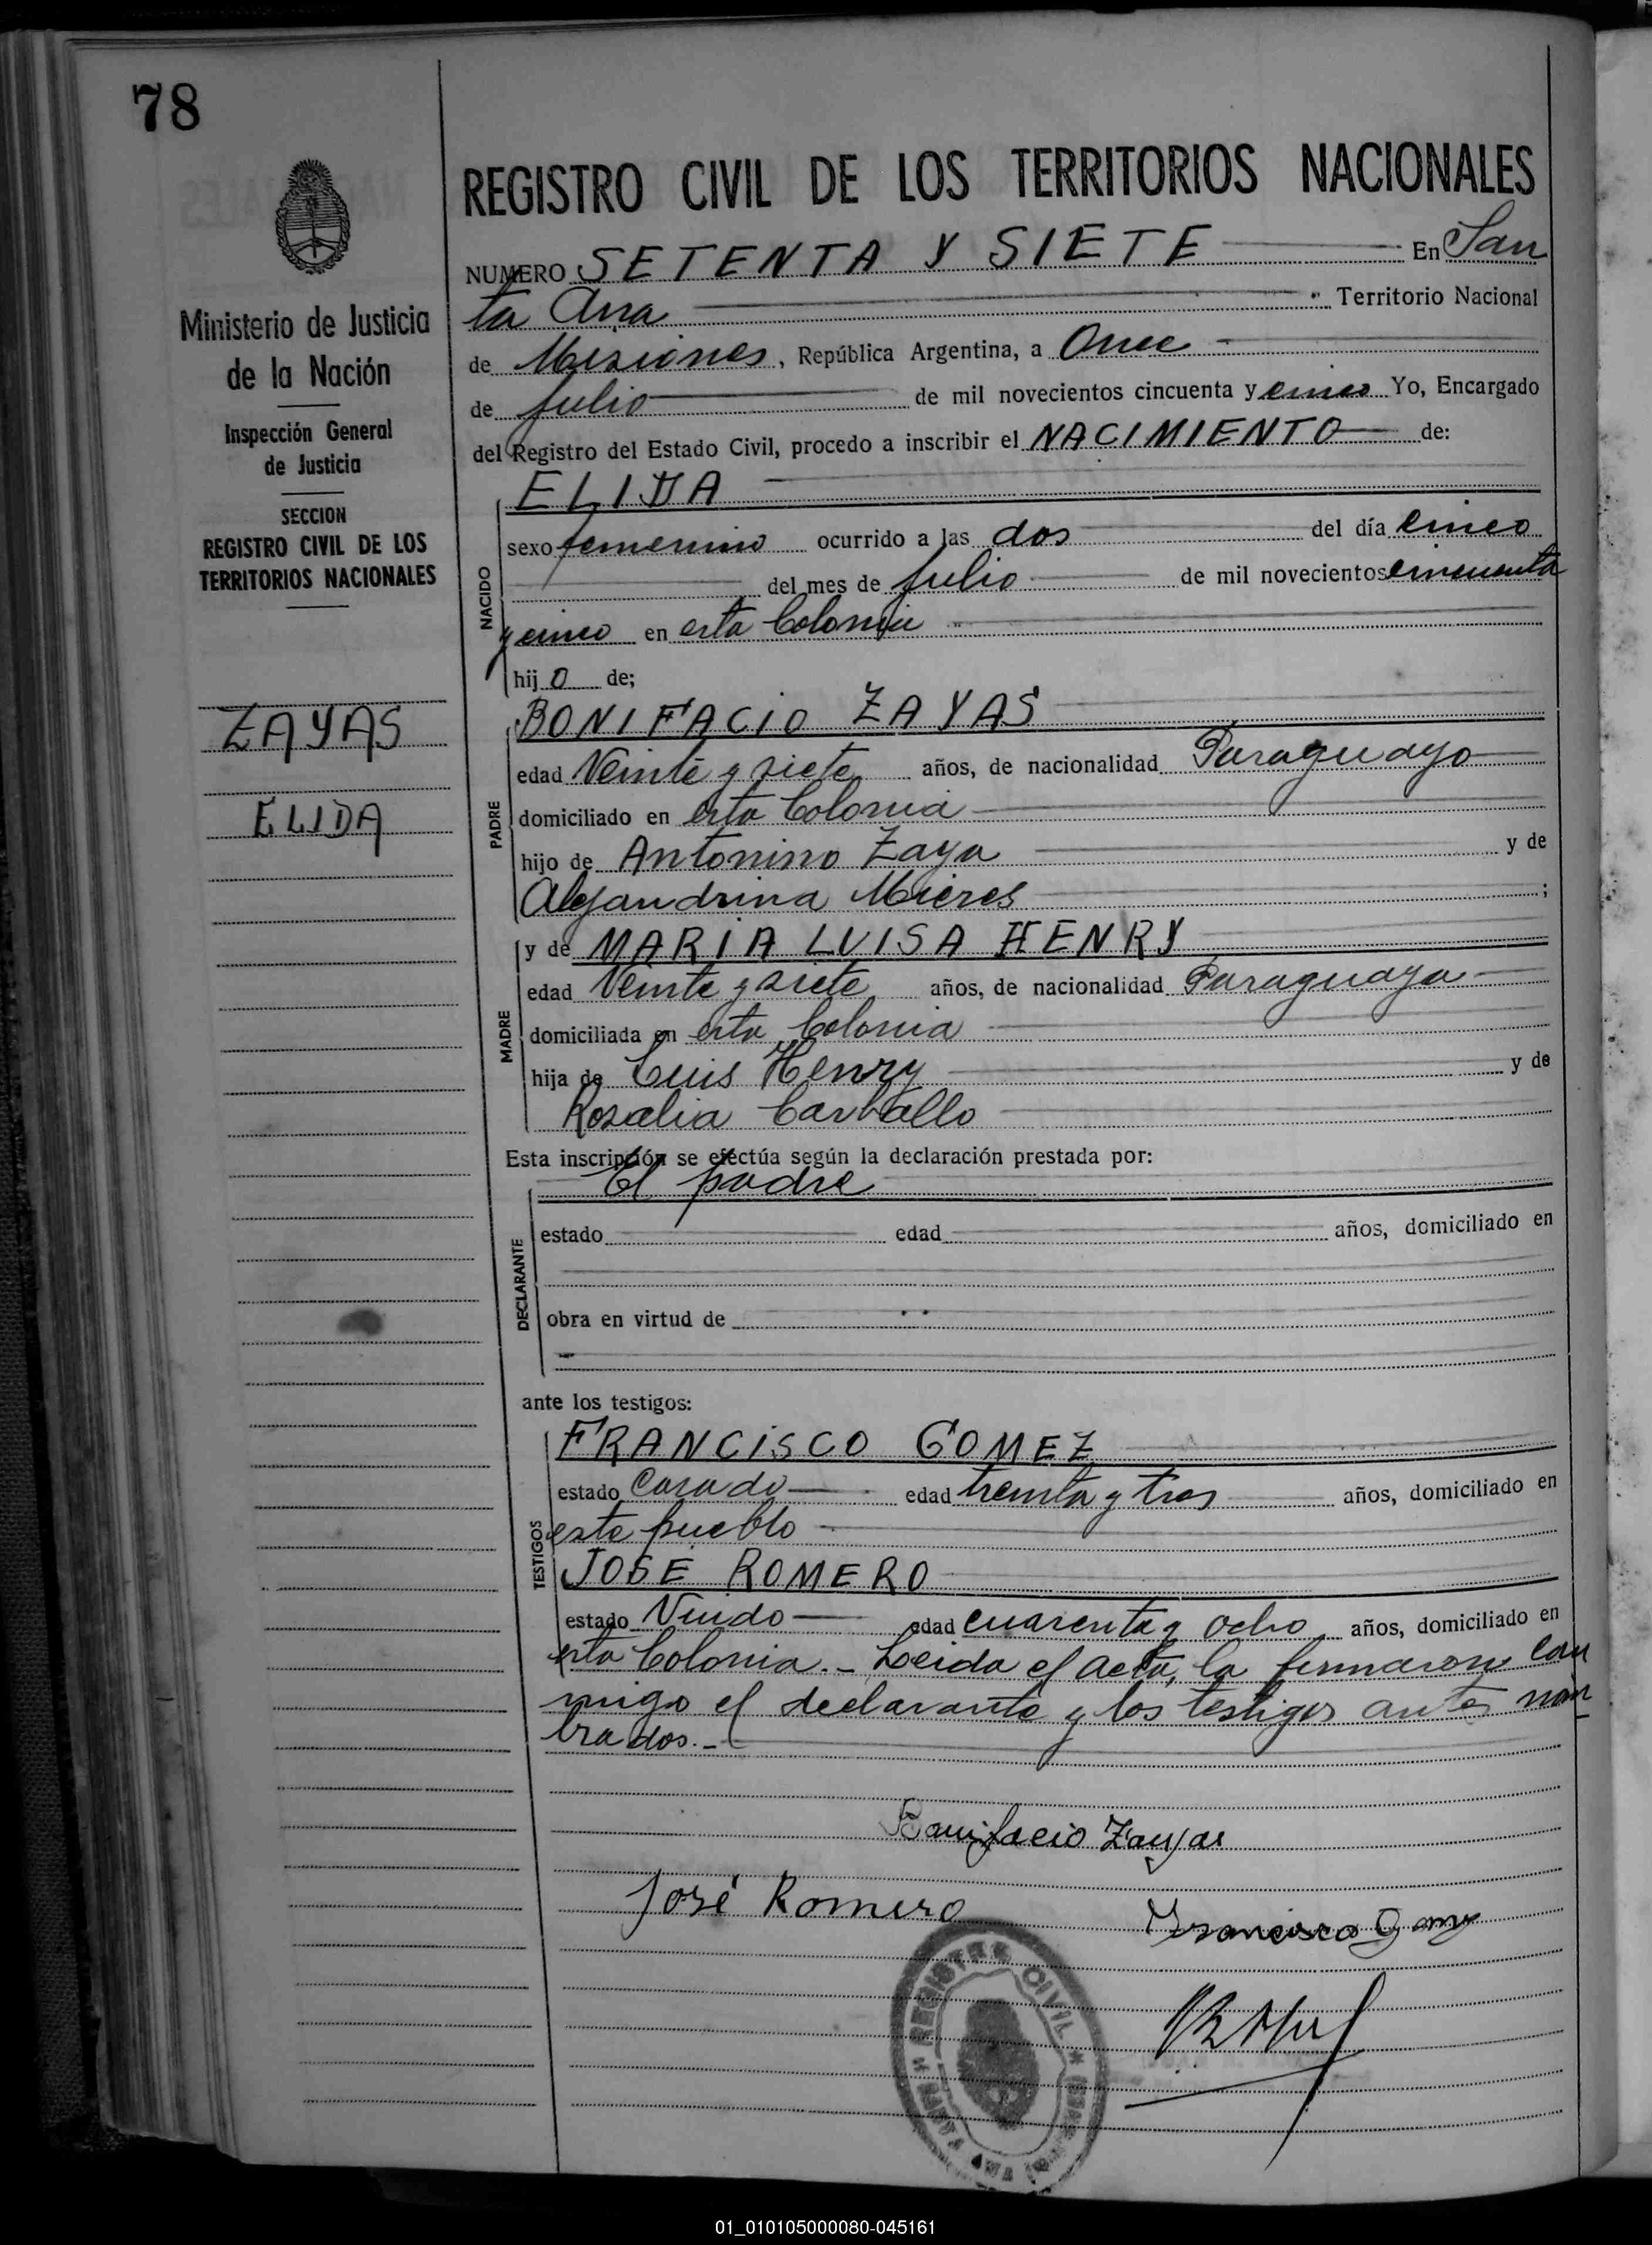 78
REGISTRO CIVIL DE LOS TERRITORIOS NACIONALES
NUMERO SETENTA Y SIETE En San
ta Ana Territorio Nacional
de Misiones, República Argentina, a Once
de Julio de mil novecientos cincuenta y cinco Yo, Encargado
del Registro del Estado Civil, procedo a inscribir el NACIMIENTO de:
Ministerio de Justicia
de la Nación
Inspección General
de Justicia
SECCION
REGISTRO CIVIL DE LOS
TERRITORIOS NACIONALES
ZAYAS
ELIDA
NACIDO
ELIDA
sexo femenino ocurrido a las dos del día cinco
del mes de Julio de mil novecientos cincuenta
y cinco en esta Colonia
hijo de;
PADRE
BONIFACIO ZAYAS
edad Veinte y siete años, de nacionalidad Paraguayo
domiciliado en esta Colonia
hijo de Antonino Zaya y de
Alejandrina Mieres ;
MADRE
y de MARIA LUISA HENRY
edad Veinte y siete años, de nacionalidad Paraguaya
domiciliada en esta Colonia
hija de Luis Henry y de
Rosalia Carballo
Esta inscripción se efectúa según la declaración prestada por:
DECLARANTE
El padre
estado edad años, domiciliado en
obra en virtud de
ante los testigos:
TESTIGOS
FRANCISCO GOMEZ
estado Casado edad treinta y tres años, domiciliado en
este pueblo
JOSE ROMERO
estado Viudo edad cuarenta y ocho años, domiciliado en
esta Colonia.- Leida el acta, la firmaron con
migo el declarante y los testigos antes nom
brados.-
Bonifacio Zayas
José Romero
Francisco Gomez
REGISTRO CIVIL
SANTA ANA
01_010105000080-045161